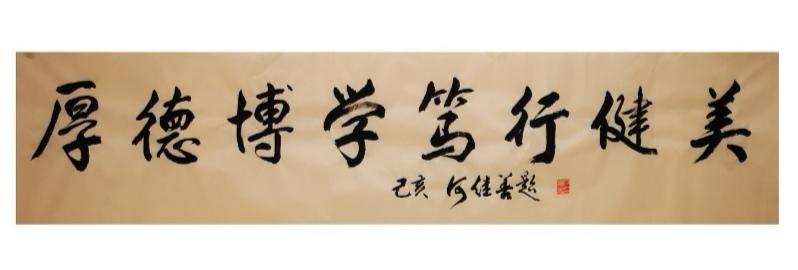 厚德博学笃行健美
己亥 何佳善题